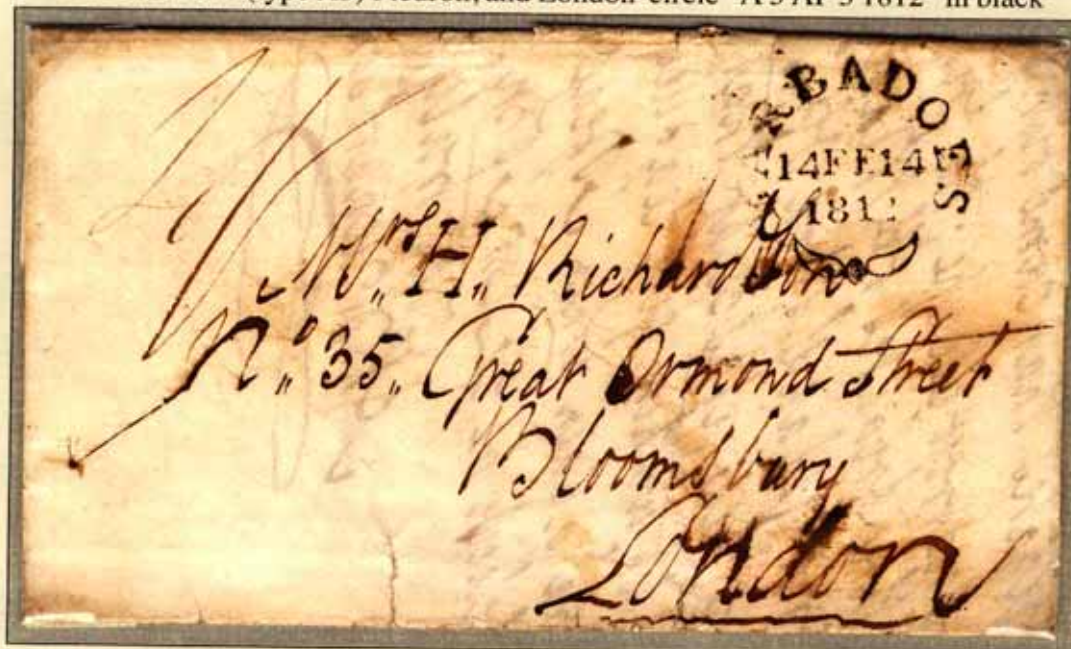 and London circle "A 3 AP 3 1812" in black
RBADOES
14FE14
1812
Mrs H. Richardson
No 35. Great Ormond Street
Bloomsbury
London